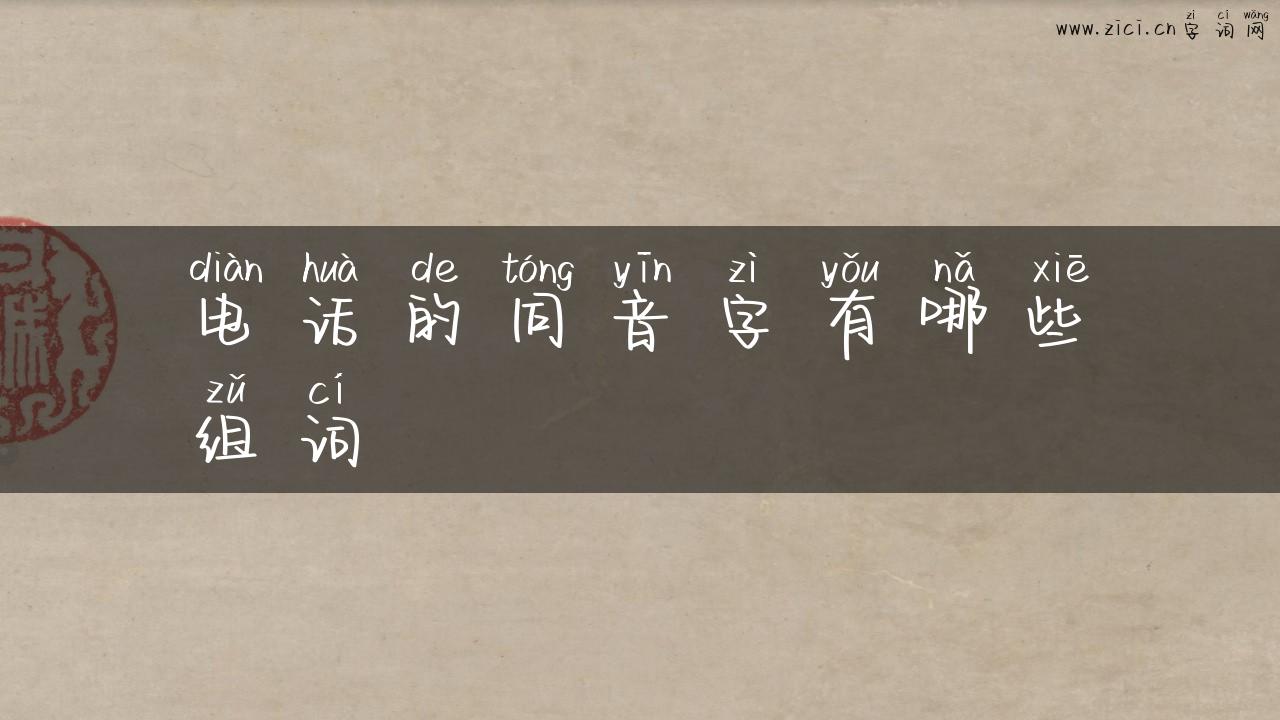 zì cí wǎng
www.zici.cn 字词网
diàn huà de tóng yīn zì yǒu nǎ xiē
电话的同音字有哪些
zǔ cí
组词